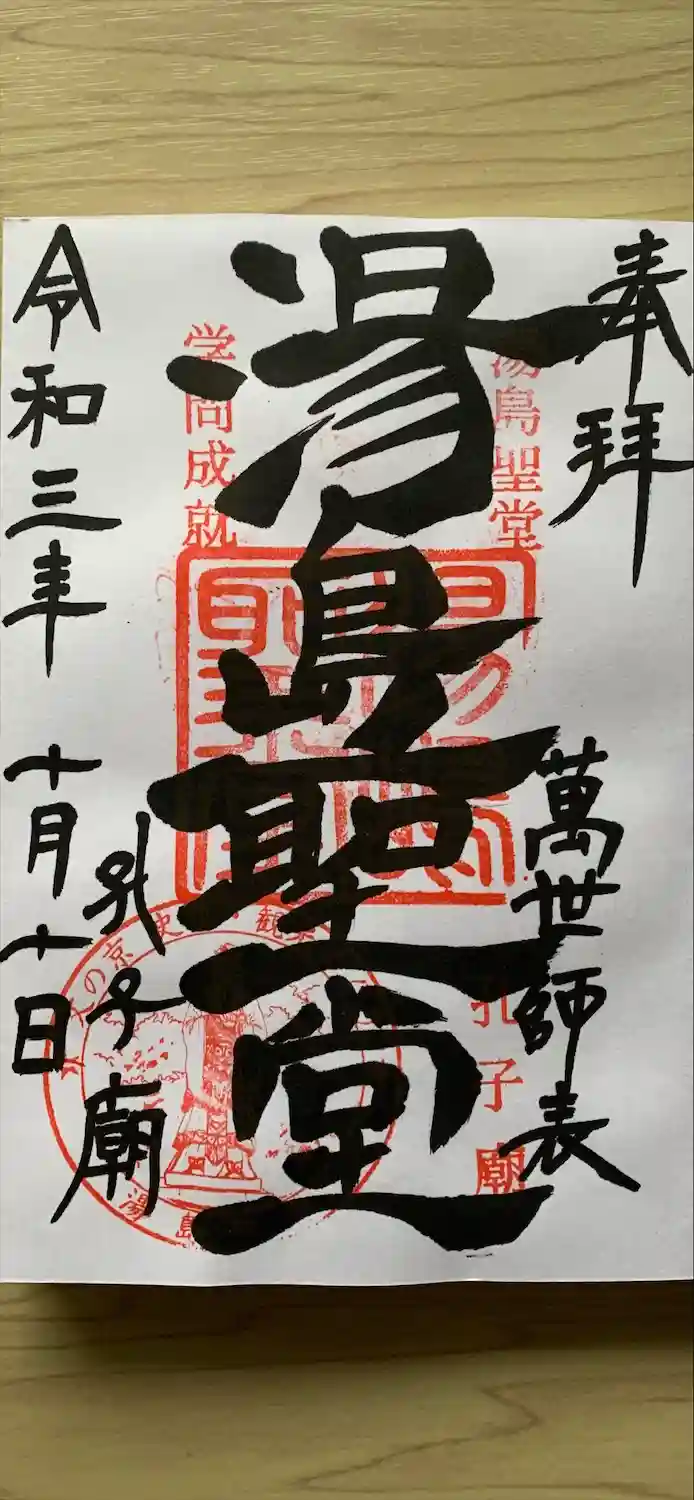 奉拝
萬世師表
湯島聖堂
孔子廟
湯島聖堂
孔子廟
学問成就
令和三年
十月十日